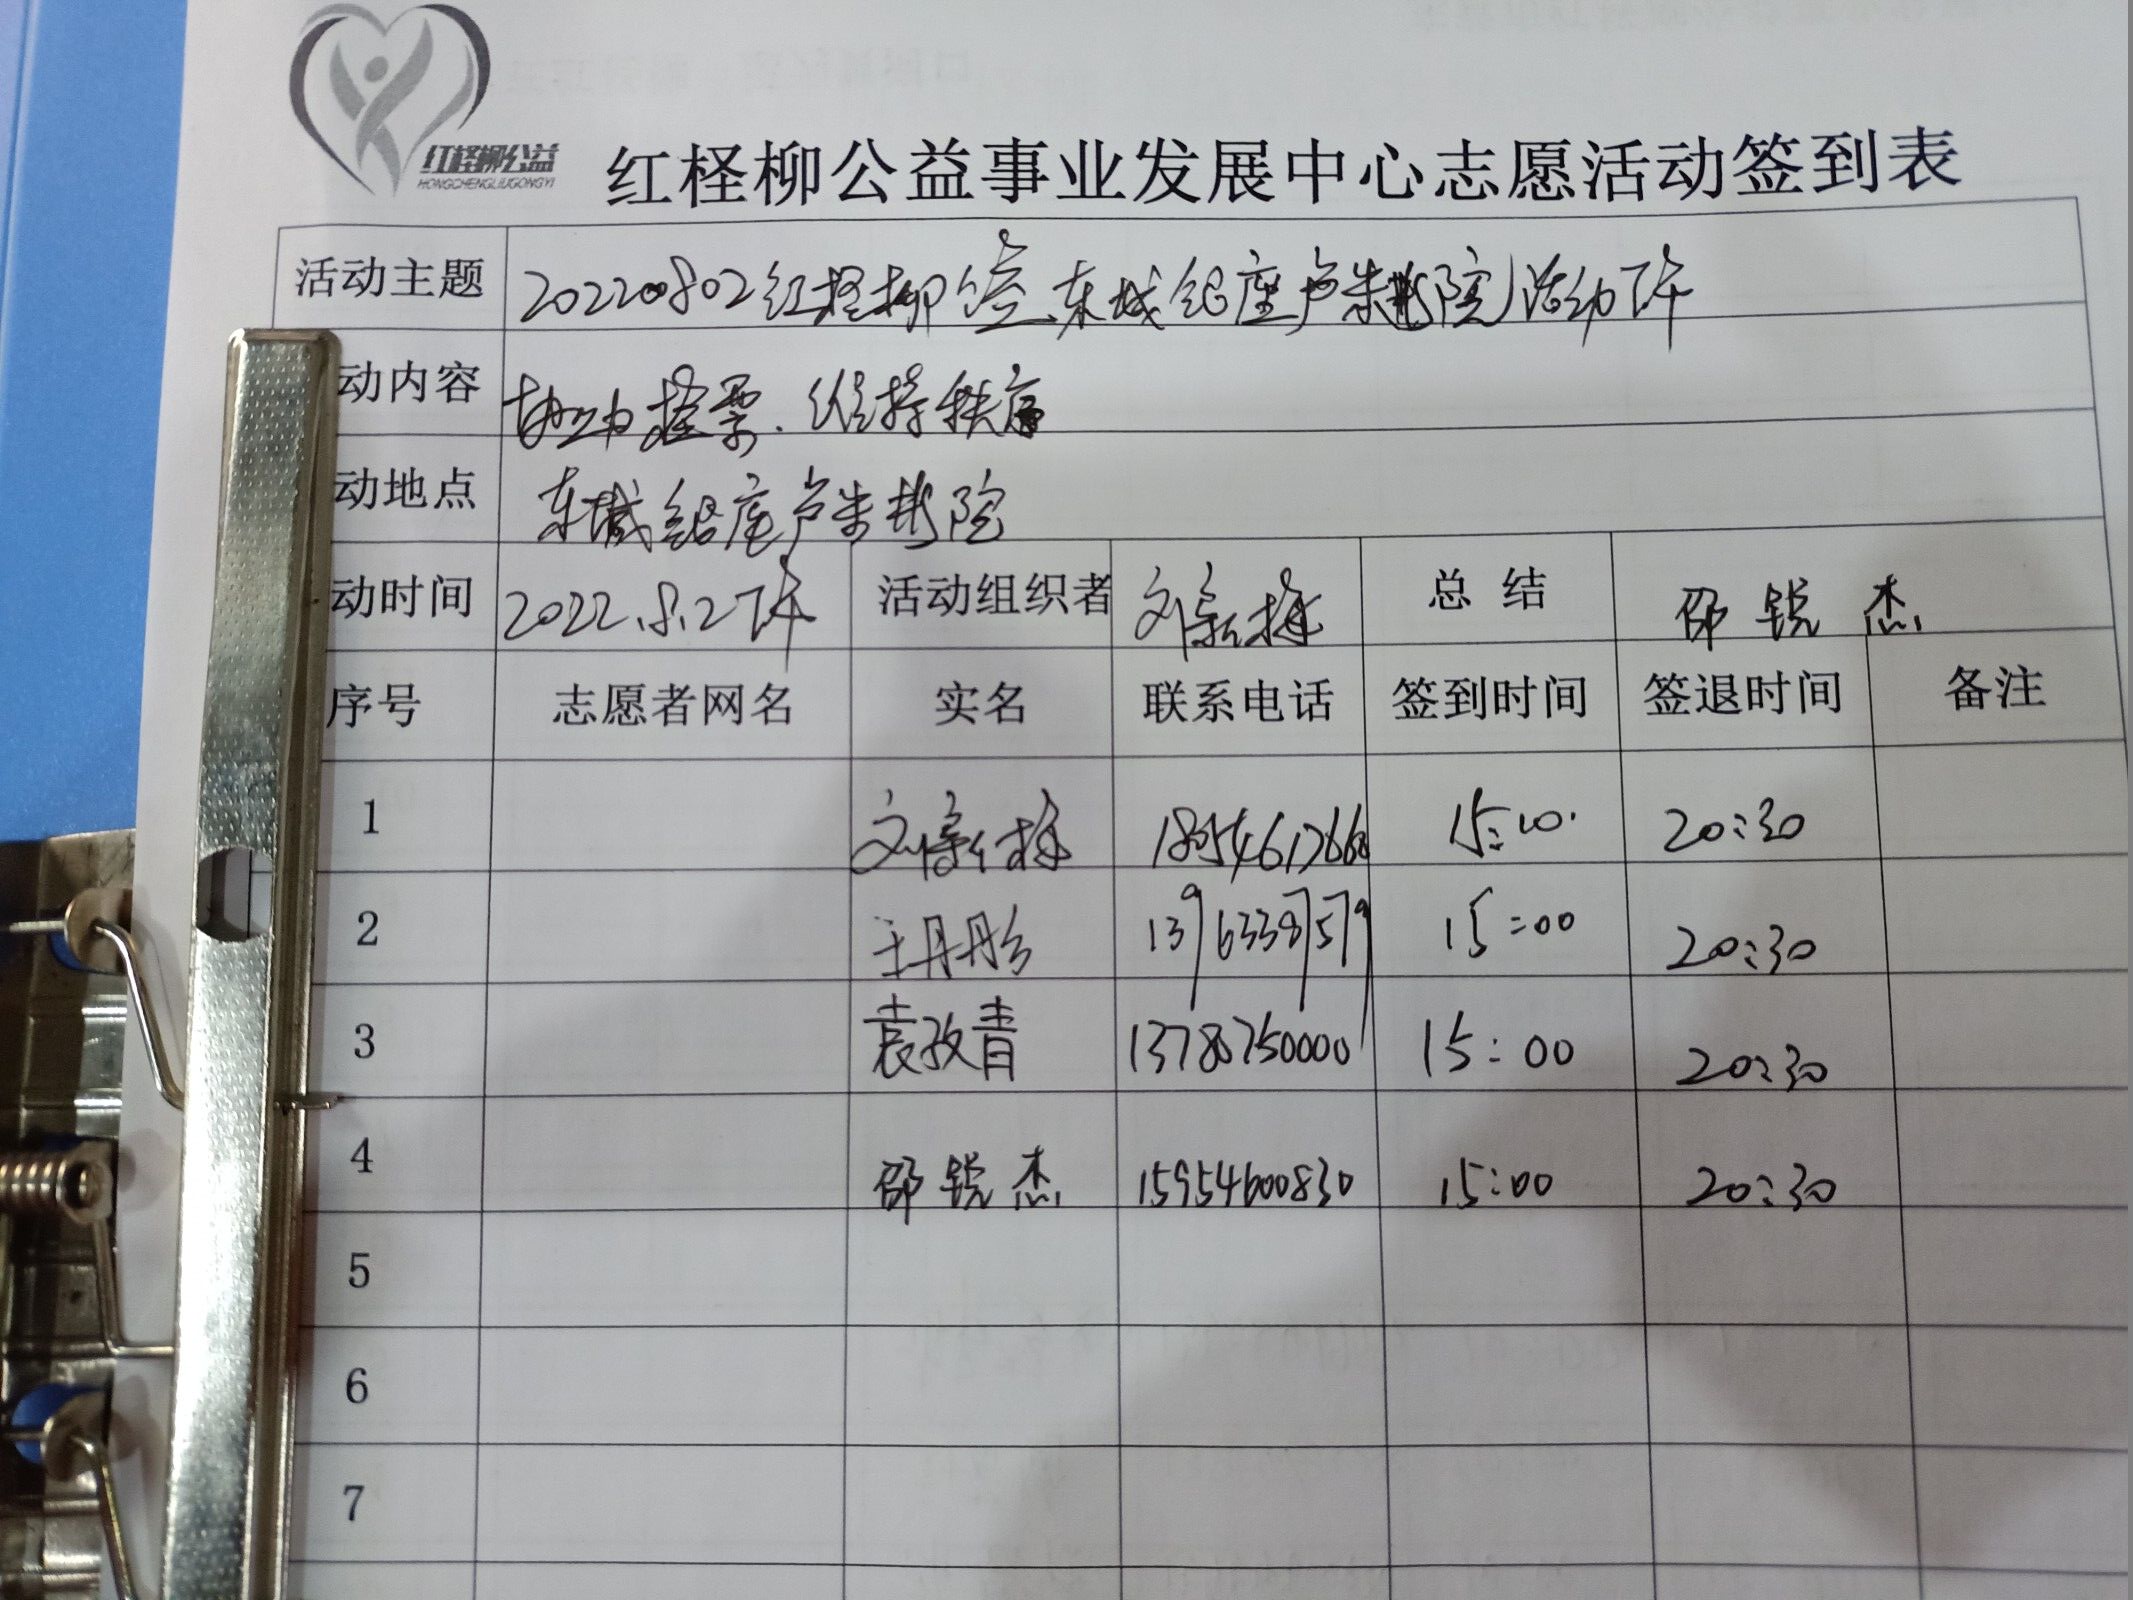 红柽柳公益
HONGCHENGLIUGONGYI
红柽柳公益事业发展中心志愿活动签到表
活动主题 20220802红柽柳公益东城银座卢米影院活动下午
动内容 协助 票.维持秩序
动地点 东城银座卢米影院
动时间 2022.8.2下午 活动组织者 刘 梅 总 结 邵锐杰
序号 志愿者网名 实名 联系电话 签到时间 签退时间 备注
1 刘 梅 15:00. 20:30
2 王丹彤 13963387579 15:00 20:30
3 袁孜青 13780750000 15:00 20:30
4 邵锐杰 15954600830 15:00 20:30
5
6
7